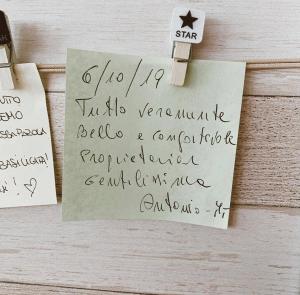 STAR
6/10/19
Tutto veramente
Bello e confortevole
Proprietaria
gentilissima
Antonio
UTTO
EMO
BASILICATA!
♡